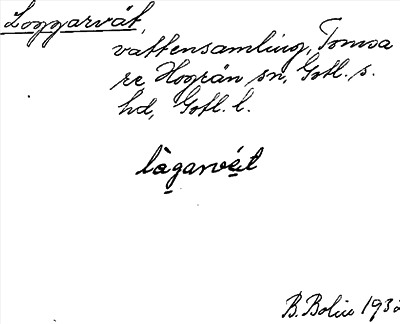 Loggarvät,
vattensamling, Tomsa
re Hogrän sn, Gotl. s.
hd, Gotl. l.
làgarvét
B. Bolin 1932